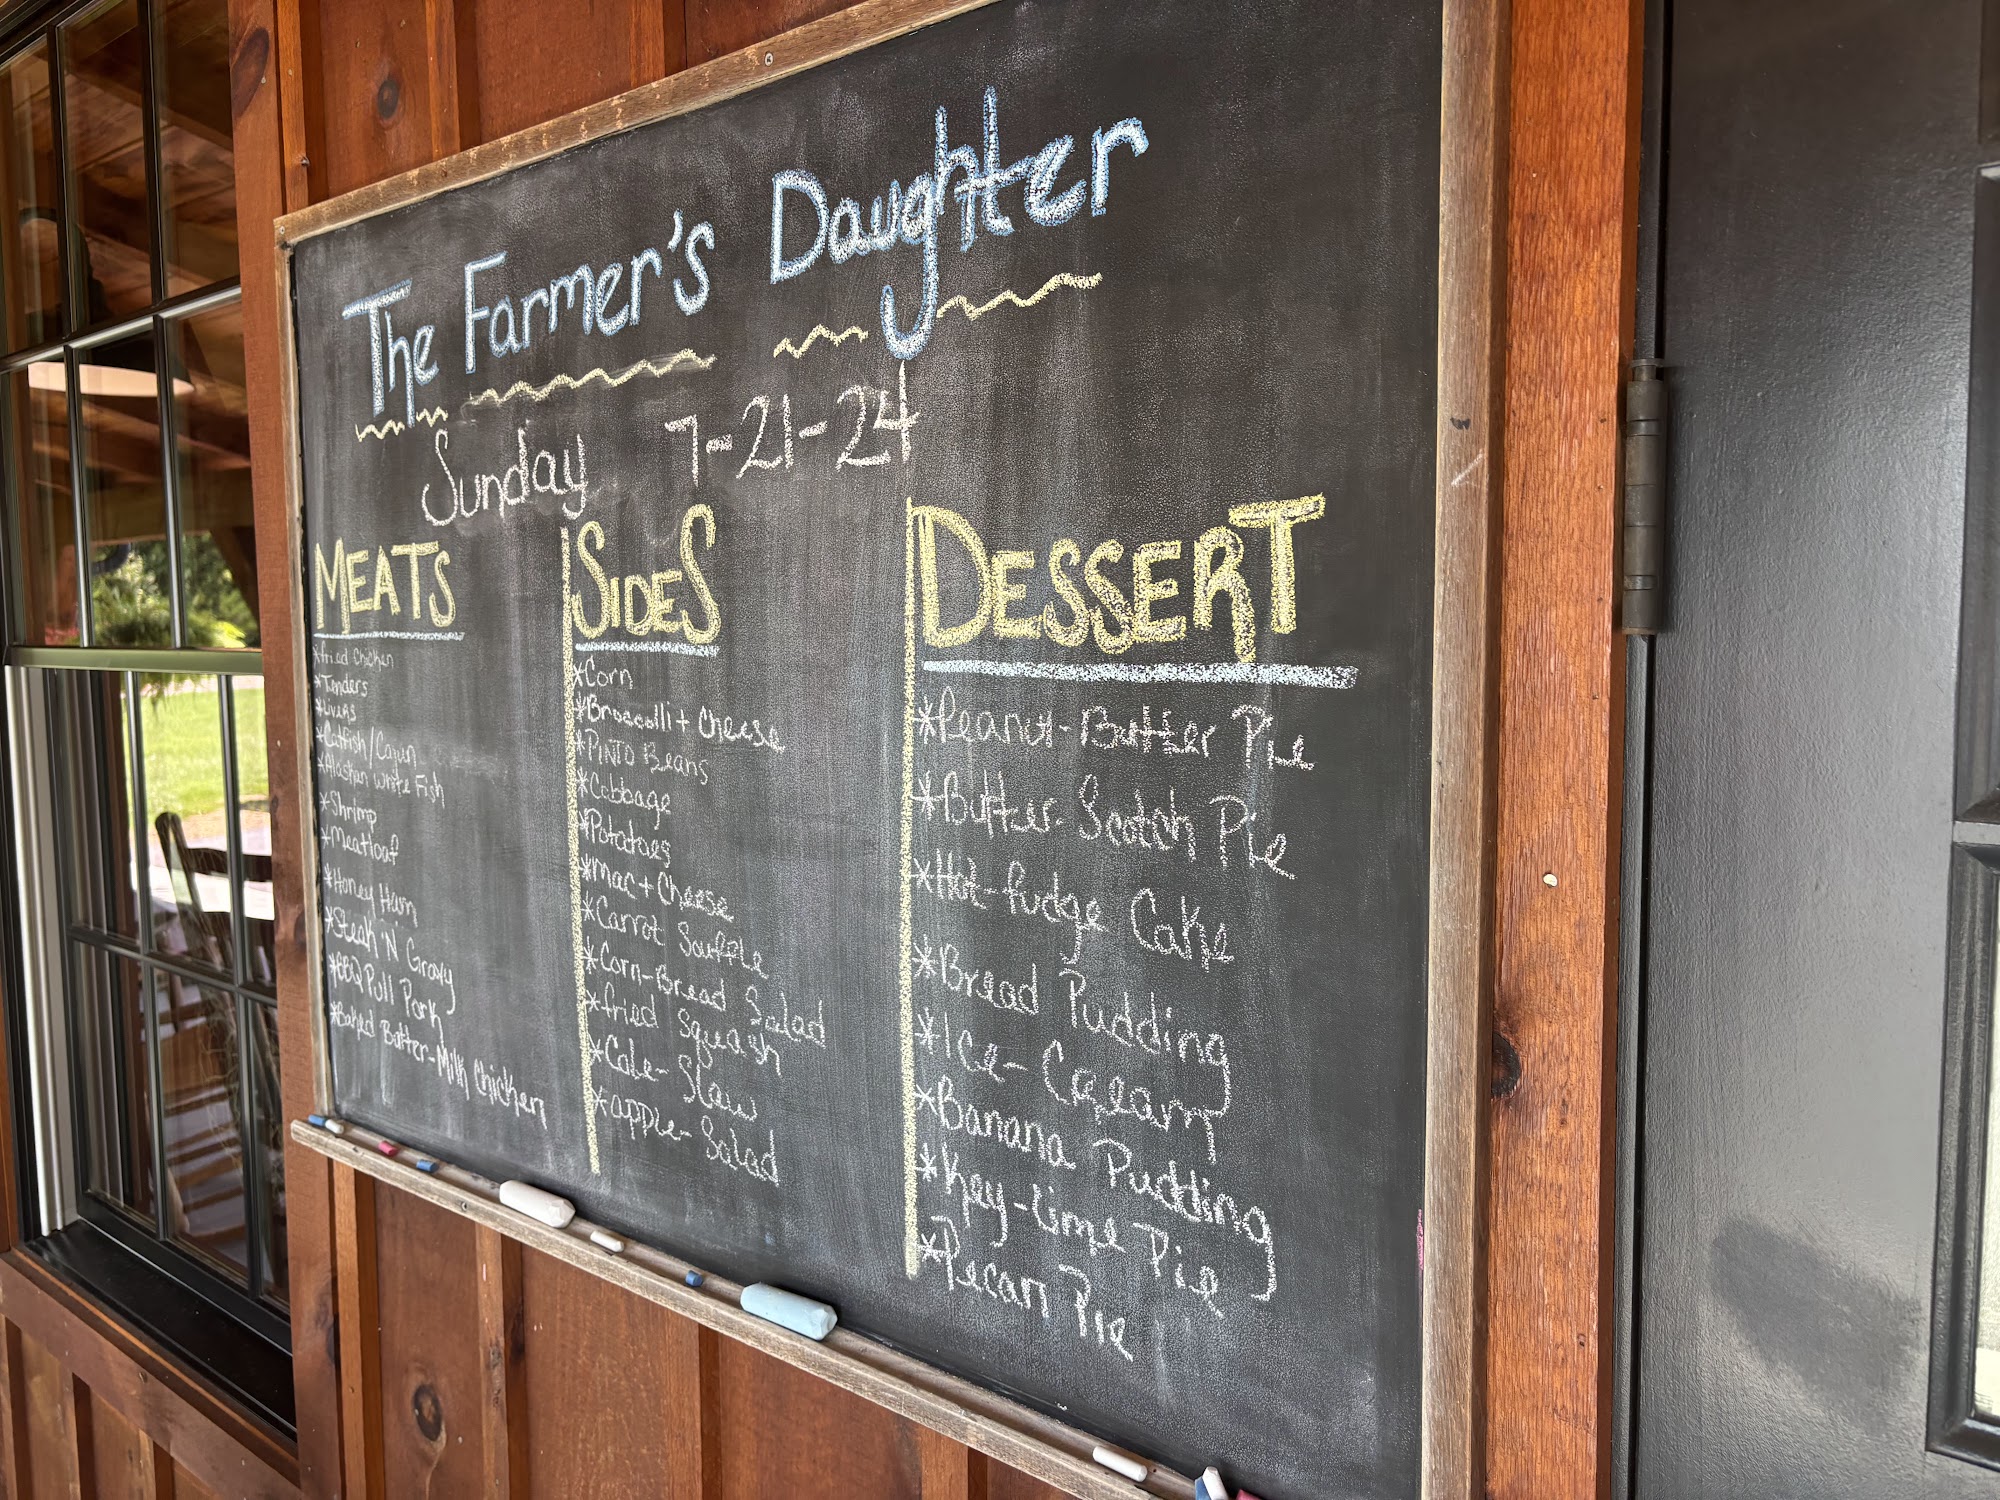 The Farmer's Daughter
Sunday 7-21-24
MEATS
*fried chicken
*Tenders
*Livers
*Catfish/Cajun
*Alaskan white Fish
*Shrimp
*Meatloaf
*Honey Ham
*Steak 'N Gravy
*BBQ Pull Pork
*Baked Butter-Milk Chicken
SIDES
*Corn
*Broccolli + Cheese
*PINTO Beans
*Cabbage
*Potatoes
*Mac + Cheese
*Carrot Souffle
*Corn-Bread Salad
*fried Squash
*Cole-Slaw
*apple-Salad
DESSERT
*Peanut-Butter Pie
*Butter-Scotch Pie
*Hot-fudge Cake
*Bread Pudding
*Ice-Cream
*Banana Pudding
*Key-lime Pie
*Pecan Pie